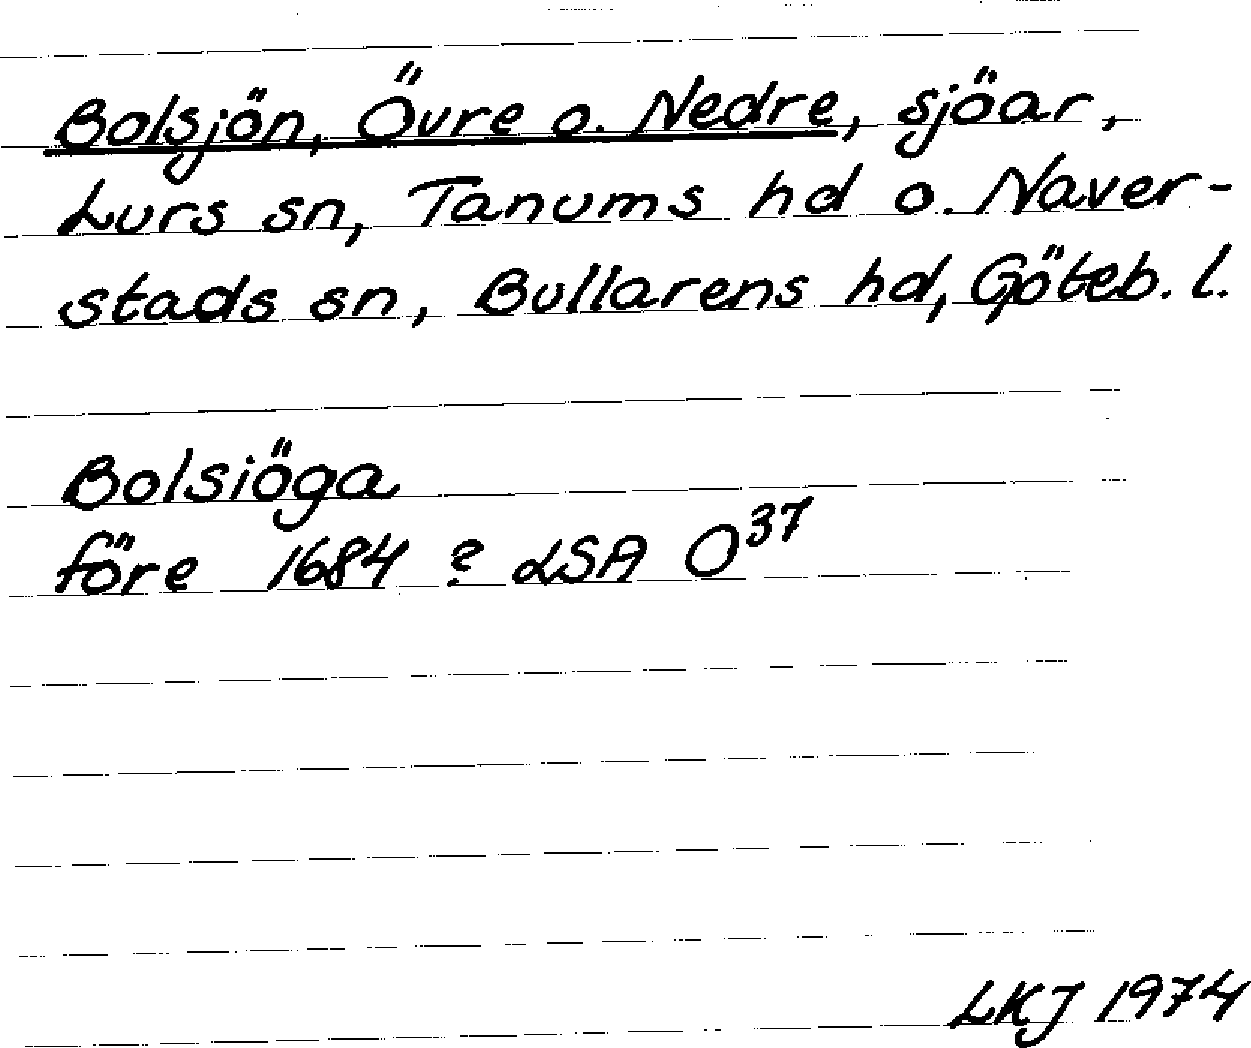 Bolsjön, Övre o. Nedre, sjöar,
Lurs sn, Tanums hd o. Naver-
stads sn, Bullarens hd, Göteb. l.
Bolsiöga
före 1684 ? LSA O³⁷
LKJ 1974